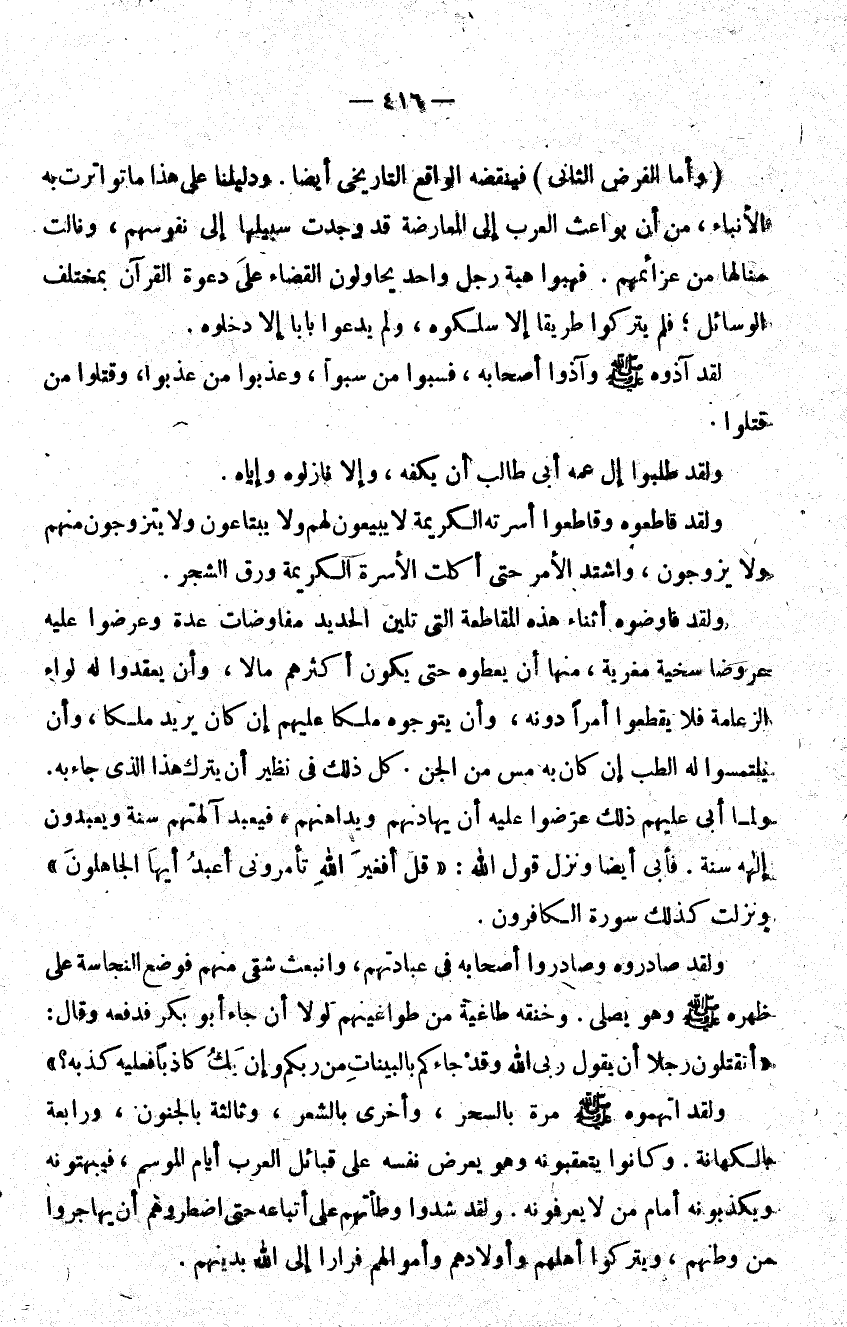 — ٤١٦ —
(وأما الفرض الثانى) فينقضه الواقع التاريخى أيضا . ودليلنا على هذا ماتواترت به
الأنباء ، من أن بواعث العرب إلى المعارضة قد وجدت سبيلها إلى نفوسهم ، ونالت
منالها من عزائمهم . فهبوا هبة رجل واحد يحاولون القضاء على دعوة القرآن بمختلف
الوسائل ؛ فلم يتركوا طريقا إلا سلكوه ، ولم يدعوا بابا إلا دخلوه .
لقد آذوه ﷺ وآذوا أصحابه ، فسبوا من سبوا ، وعذبوا من عذبوا، وقتلوا من
قتلوا .
ولقد طلبوا إلى عمه أبى طالب أن يكفه ، وإلا نازلوه وإياه .
ولقد قاطعوه وقاطعوا أسرته الكريمة لا يبيعون لهم ولا يبتاعون ولا يتزوجون منهم
ولا يزوجون ، واشتد الأمر حتى أكلت الأسرة الكريمة ورق الشجر .
ولقد فاوضوه أثناء هذه المقاطعة التى تلين الحديد مفاوضات عدة وعرضوا عليه
عروضا سخية مغرية ، منها أن يعطوه حتى يكون أكثرهم مالا ، وأن يعقدوا له لواء
الزعامة فلا يقطعوا أمراً دونه ، وأن يتوجوه ملكا عليهم إن كان يريد ملكا ، وأن
يلتمسوا له الطب إن كان به مس من الجن . كل ذلك فى نظير أن يترك هذا الذى جاء به.
ولما أبى عليهم ذلك عرضوا عليه أن يهادنهم ويداهنهم ، فيعبد آلهتهم سنة ويعبدون
إلهه سنة . فأبى أيضا ونزل قول الله : «قل أفغيرَ اللهِ تأمرونى أعبدُ أيها الجاهلونَ»
ونزلت كذلك سورة الكافرون .
ولقد صادروه وصادروا أصحابه فى عبادتهم، وانبعث شقى منهم فوضع النجاسة على
ظهره ﷺ وهو يصلى . وخنقه طاغية من طواغيتهم لولا أن جاء أبو بكر فدفعه وقال:
«أتقتلون رجلا أن يقول ربى الله وقدْ جاءكم بالبيناتِ من ربكم وإن يَكُ كاذباً فعليه كذبه؟»
ولقد اتهموه ﷺ مرة بالسحر ، وأخرى بالشعر ، وثالثة بالجنون ، ورابعة
بالكهانة . وكانوا يتعقبونه وهو يعرض نفسه على قبائل العرب أيام الموسم ، فيبهتونه
ويكذبونه أمام من لا يعرفونه . ولقد شدوا وطأتهم على أتباعه حتى اضطروهم أن يهاجروا
من وطنهم ، ويتركوا أهلهم وأولادهم وأموالهم فرارا إلى الله بدينهم .